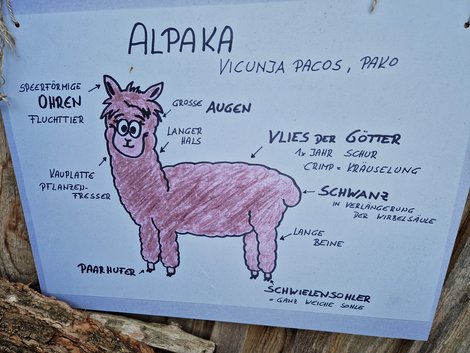 ALPAKA
VICUNJA PACOS, PAKO
SPEERFÖRMIGE
OHREN
FLUCHTTIER
GROSSE AUGEN
LANGER
HALS
VLIES DER GÖTTER
1x JAHR SCHUR
CRIMP = KRÄUSELUNG
KAUPLATTE
PFLANZEN-
FRESSER
SCHWANZ
IN VERLÄNGERUNG
DER WIRBELSÄULE
LANGE
BEINE
PAARHUFER
SCHWIELENSOHLER
= GANZ WEICHE SOHLE